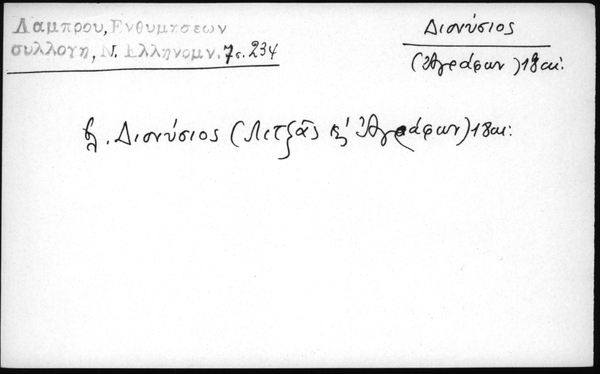 Λαμπρου, Ενθυμησεων
συλλογη, Ν. Ελληνομν. 7ς. 234
Διονύσιος
(Ἀγράφων) 18 αἰ.
βλ. Διονύσιος (Λιτζᾶς κ' Ἀγράφων) 18 αἰ.